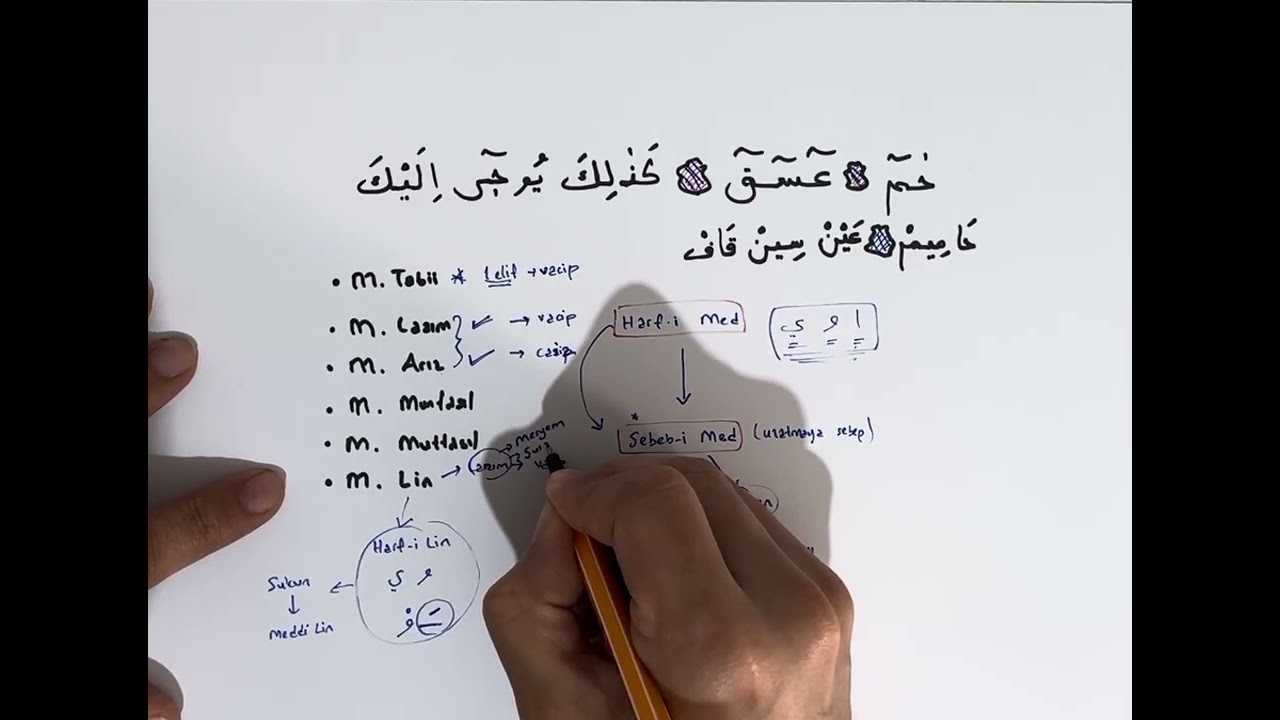 حٰمٓ عٓسٓقٓ كَذٰلِكَ يُوحٓى اِلَيْكَ
حَا مِيمْ عَيْنْ سِينْ قَافْ
• M. Tabii * 1 elif → vacip
• M. Lazım ✓ → vacip
• M. Arız ✓ → caiz
• M. Munfasıl
• M. Muttasıl
• M. Lin → Lazım → Meryem
Şura
Harf-i Med
ا و ي
* Sebeb-i Med (uzatmaya sebep)
Harf-i Lin
و ي
ـَ وْ
Sukun
↓
Meddi Lin